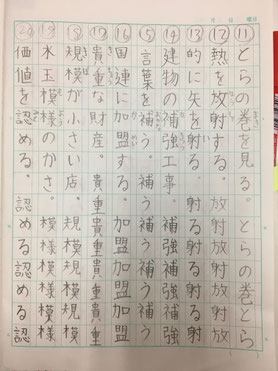 ⑪とらの巻を見る。とらの巻とら
⑫熱を放射する。放射放射放
⑬的に矢を射る。射る射る射
⑭建物の補強工事。補強補強
⑮言葉を補う。補う補う補う
⑯国連に加盟する。加盟加盟
⑰貴重な財産。貴重貴重貴重
⑱規模が小さい店。規模規模
⑲水玉模様のかさ。模様模様
⑳価値を認める。認める認める